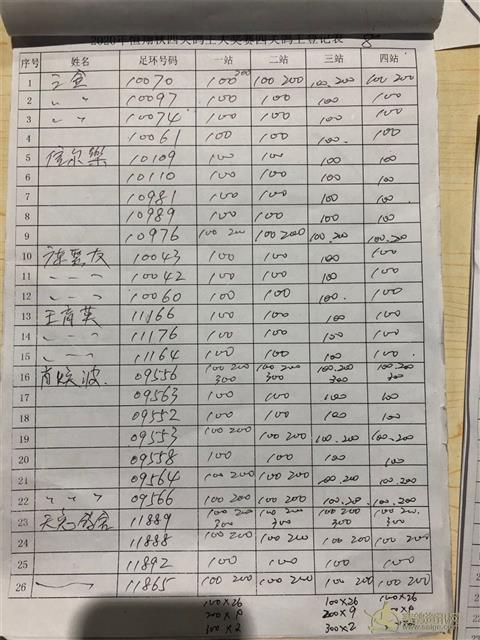 2020年恒翔秋四关鸽王大奖赛四关鸽王登记表 8
序号 姓名 足环号码 一站 二站 三站 四站
1 10070 100 200 100 200 100.200 100 200
2 〃 〃 10097 100 100 100 100
3 〃 〃 10074 100 100 100 100
4 10061 100 100 100. 100
5 10109 100 100 100 100
6 10110 100 100 100 100
7 10981 100 100 100 100
8 10989 100 100 100 100
9 10976 100 200 100 200 100.200 100.200
10 10043 100 100 100 100
11 10042 100 100 100 100
12 10060 100 100 100. 100
13 王育英 11166 100 100 100 100
14 11176 100 100 100 100
15 11164 100 100 100 100
16 肖焕波. 09556 100 200 300 100 200 300 100.200 300 100.200 300
17 09563 100 100 100 100
18 09552 100 100 100 100
19 09553 100 200 100 200 100.200 100.200
20 09558 100 100 100 100
21 09564 100 200 100 200 100.200 100.200
22 〃 〃 〃 09566 100 200 100 200 100.200 100.200
23 11889 100 200 300 100 200 300 100 200 300 100 200. 300
24 11888 100 200 100 200 100 200 100 200
25 11892 100 100 100 100
26 11865 100 200 100 200 100 200 100 200
100×26 100×26 100×26
200×9
300×2 300×2